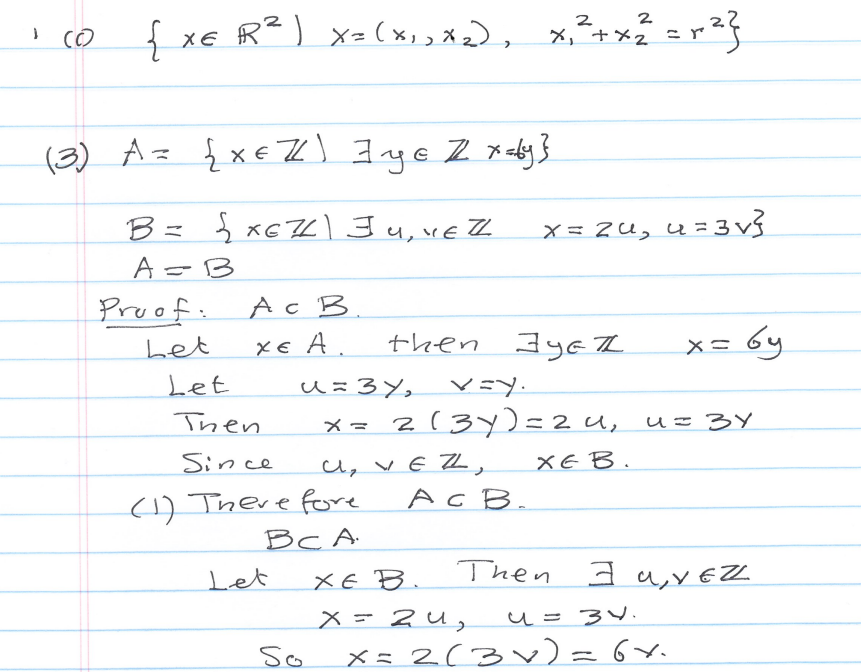 (c) { x ∈ ℝ² | x = (x₁, x₂), x₁² + x₂² = r² }
(3) A = { x ∈ ℤ | ∃ y ∈ ℤ x = 6y }
B = { x ∈ ℤ | ∃ u, v ∈ ℤ x = 2u, u = 3v }
A = B
Proof: A ⊂ B.
Let x ∈ A. then ∃ y ∈ ℤ x = 6y
Let u = 3y, v = y.
Then x = 2(3y) = 2u, u = 3v
Since u, v ∈ ℤ, x ∈ B.
(1) Therefore A ⊂ B.
B ⊂ A.
Let x ∈ B. Then ∃ u, v ∈ ℤ
x = 2u, u = 3v.
So x = 2(3v) = 6v.